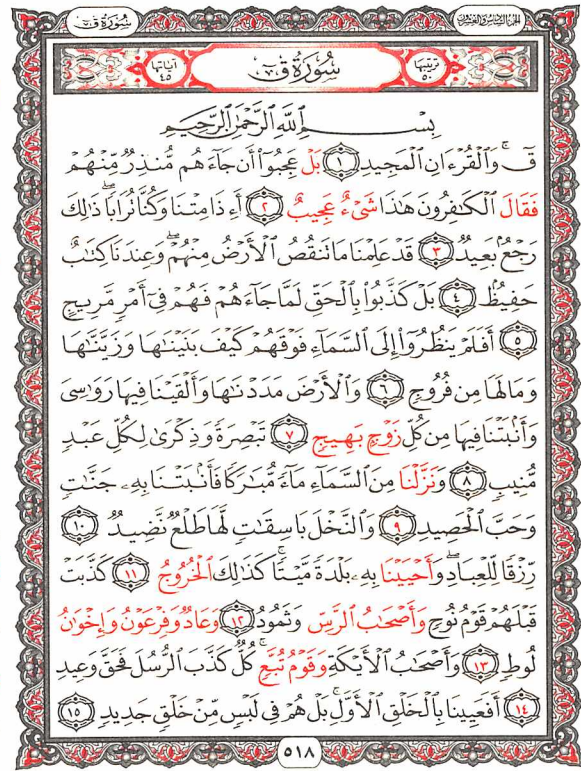 سُورَةُ ق
الجزء السادس والعشرون
سُورَةُ ق
ترتيبها ٥٠
آياتها ٤٥
بِسْمِ ٱللَّهِ ٱلرَّحْمَٰنِ ٱلرَّحِيمِ
قٓ ۚ وَٱلْقُرْءَانِ ٱلْمَجِيدِ ١ بَلْ عَجِبُوٓا۟ أَن جَآءَهُم مُّنذِرٌ مِّنْهُمْ
فَقَالَ ٱلْكَٰفِرُونَ هَٰذَا شَىْءٌ عَجِيبٌ ٢ أَءِذَا مِتْنَا وَكُنَّا تُرَابًا ۖ ذَٰلِكَ
رَجْعٌۢ بَعِيدٌ ٣ قَدْ عَلِمْنَا مَا تَنقُصُ ٱلْأَرْضُ مِنْهُمْ ۖ وَعِندَنَا كِتَٰبٌ
حَفِيظٌۢ ٤ بَلْ كَذَّبُوا۟ بِٱلْحَقِّ لَمَّا جَآءَهُمْ فَهُمْ فِىٓ أَمْرٍ مَّرِيجٍ
٥ أَفَلَمْ يَنظُرُوٓا۟ إِلَى ٱلسَّمَآءِ فَوْقَهُمْ كَيْفَ بَنَيْنَٰهَا وَزَيَّنَّٰهَا
وَمَا لَهَا مِن فُرُوجٍ ٦ وَٱلْأَرْضَ مَدَدْنَٰهَا وَأَلْقَيْنَا فِيهَا رَوَٰسِىَ
وَأَنۢبَتْنَا فِيهَا مِن كُلِّ زَوْجٍۭ بَهِيجٍ ٧ تَبْصِرَةً وَذِكْرَىٰ لِكُلِّ عَبْدٍ
مُّنِيبٍ ٨ وَنَزَّلْنَا مِنَ ٱلسَّمَآءِ مَآءً مُّبَٰرَكًا فَأَنۢبَتْنَا بِهِۦ جَنَّٰتٍ
وَحَبَّ ٱلْحَصِيدِ ٩ وَٱلنَّخْلَ بَاسِقَٰتٍ لَّهَا طَلْعٌ نَّضِيدٌ ١٠
رِّزْقًا لِّلْعِبَادِ ۖ وَأَحْيَيْنَا بِهِۦ بَلْدَةً مَّيْتًا ۚ كَذَٰلِكَ ٱلْخُرُوجُ ١١ كَذَّبَتْ
قَبْلَهُمْ قَوْمُ نُوحٍ وَأَصْحَٰبُ ٱلرَّسِّ وَثَمُودُ ١٢ وَعَادٌ وَفِرْعَوْنُ وَإِخْوَٰنُ
لُوطٍ ١٣ وَأَصْحَٰبُ ٱلْأَيْكَةِ وَقَوْمُ تُبَّعٍ ۚ كُلٌّ كَذَّبَ ٱلرُّسُلَ فَحَقَّ وَعِيدِ
١٤ أَفَعَيِينَا بِٱلْخَلْقِ ٱلْأَوَّلِ ۚ بَلْ هُمْ فِى لَبْسٍ مِّنْ خَلْقٍ جَدِيدٍ ١٥
٥١٨